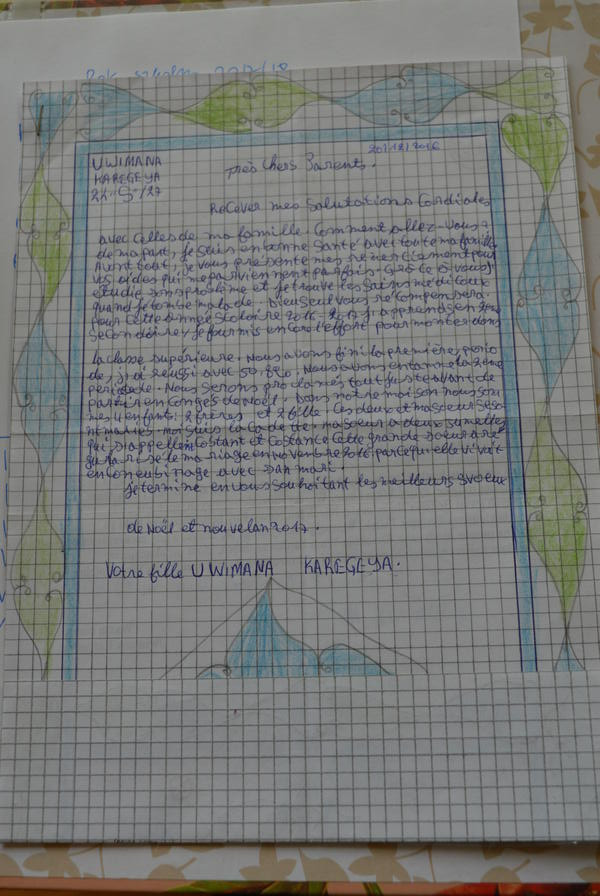 20/12/2016
UWIMANA
KAREGEYA
Très chers Parents.
Recever mes Salutations Cordiales
avec celles de ma famille. Comment allez-vous?
de ma part, je suis en bonne Santé avec toute ma famille
Avant tout, je vous présente mes remerciement pour
vos aides qui me parviennent parfois. Grâce à vous j'
étudie sans problème et je trouve les Soins médicaux
quand je tombe malade. Dieu Seul vous récompensera.
pour cette année scolaire 2016-2017 j'apprends en
Secondaire, je fournis encore l'effort pour monter dans
la classe Supérieure. Nous avons fini la première, perio
de, j'ai réussi avec 50,8%. Nous avons entamé la 2ème
période. Nous Serons proclamés tout juste avant de
partir en congés de Noël. Dans notre maison nous som
mes 4 enfants: 2 frères et 2 fille. Ces deux et ma soeur se so
nt mariés, moi suis la cadette. ma soeur a deux jumelles
qui s'appellent Costant et Costance cette grande soeur a ré
gularisé le mariage en novembre 2016 parce qu'elle vivait
en concubinage avec son mari.
Je termine en vous souhaitant les meilleurs voeux
de Noël et nouvel an 2017.
Votre fille UWIMANA KAREGEYA.